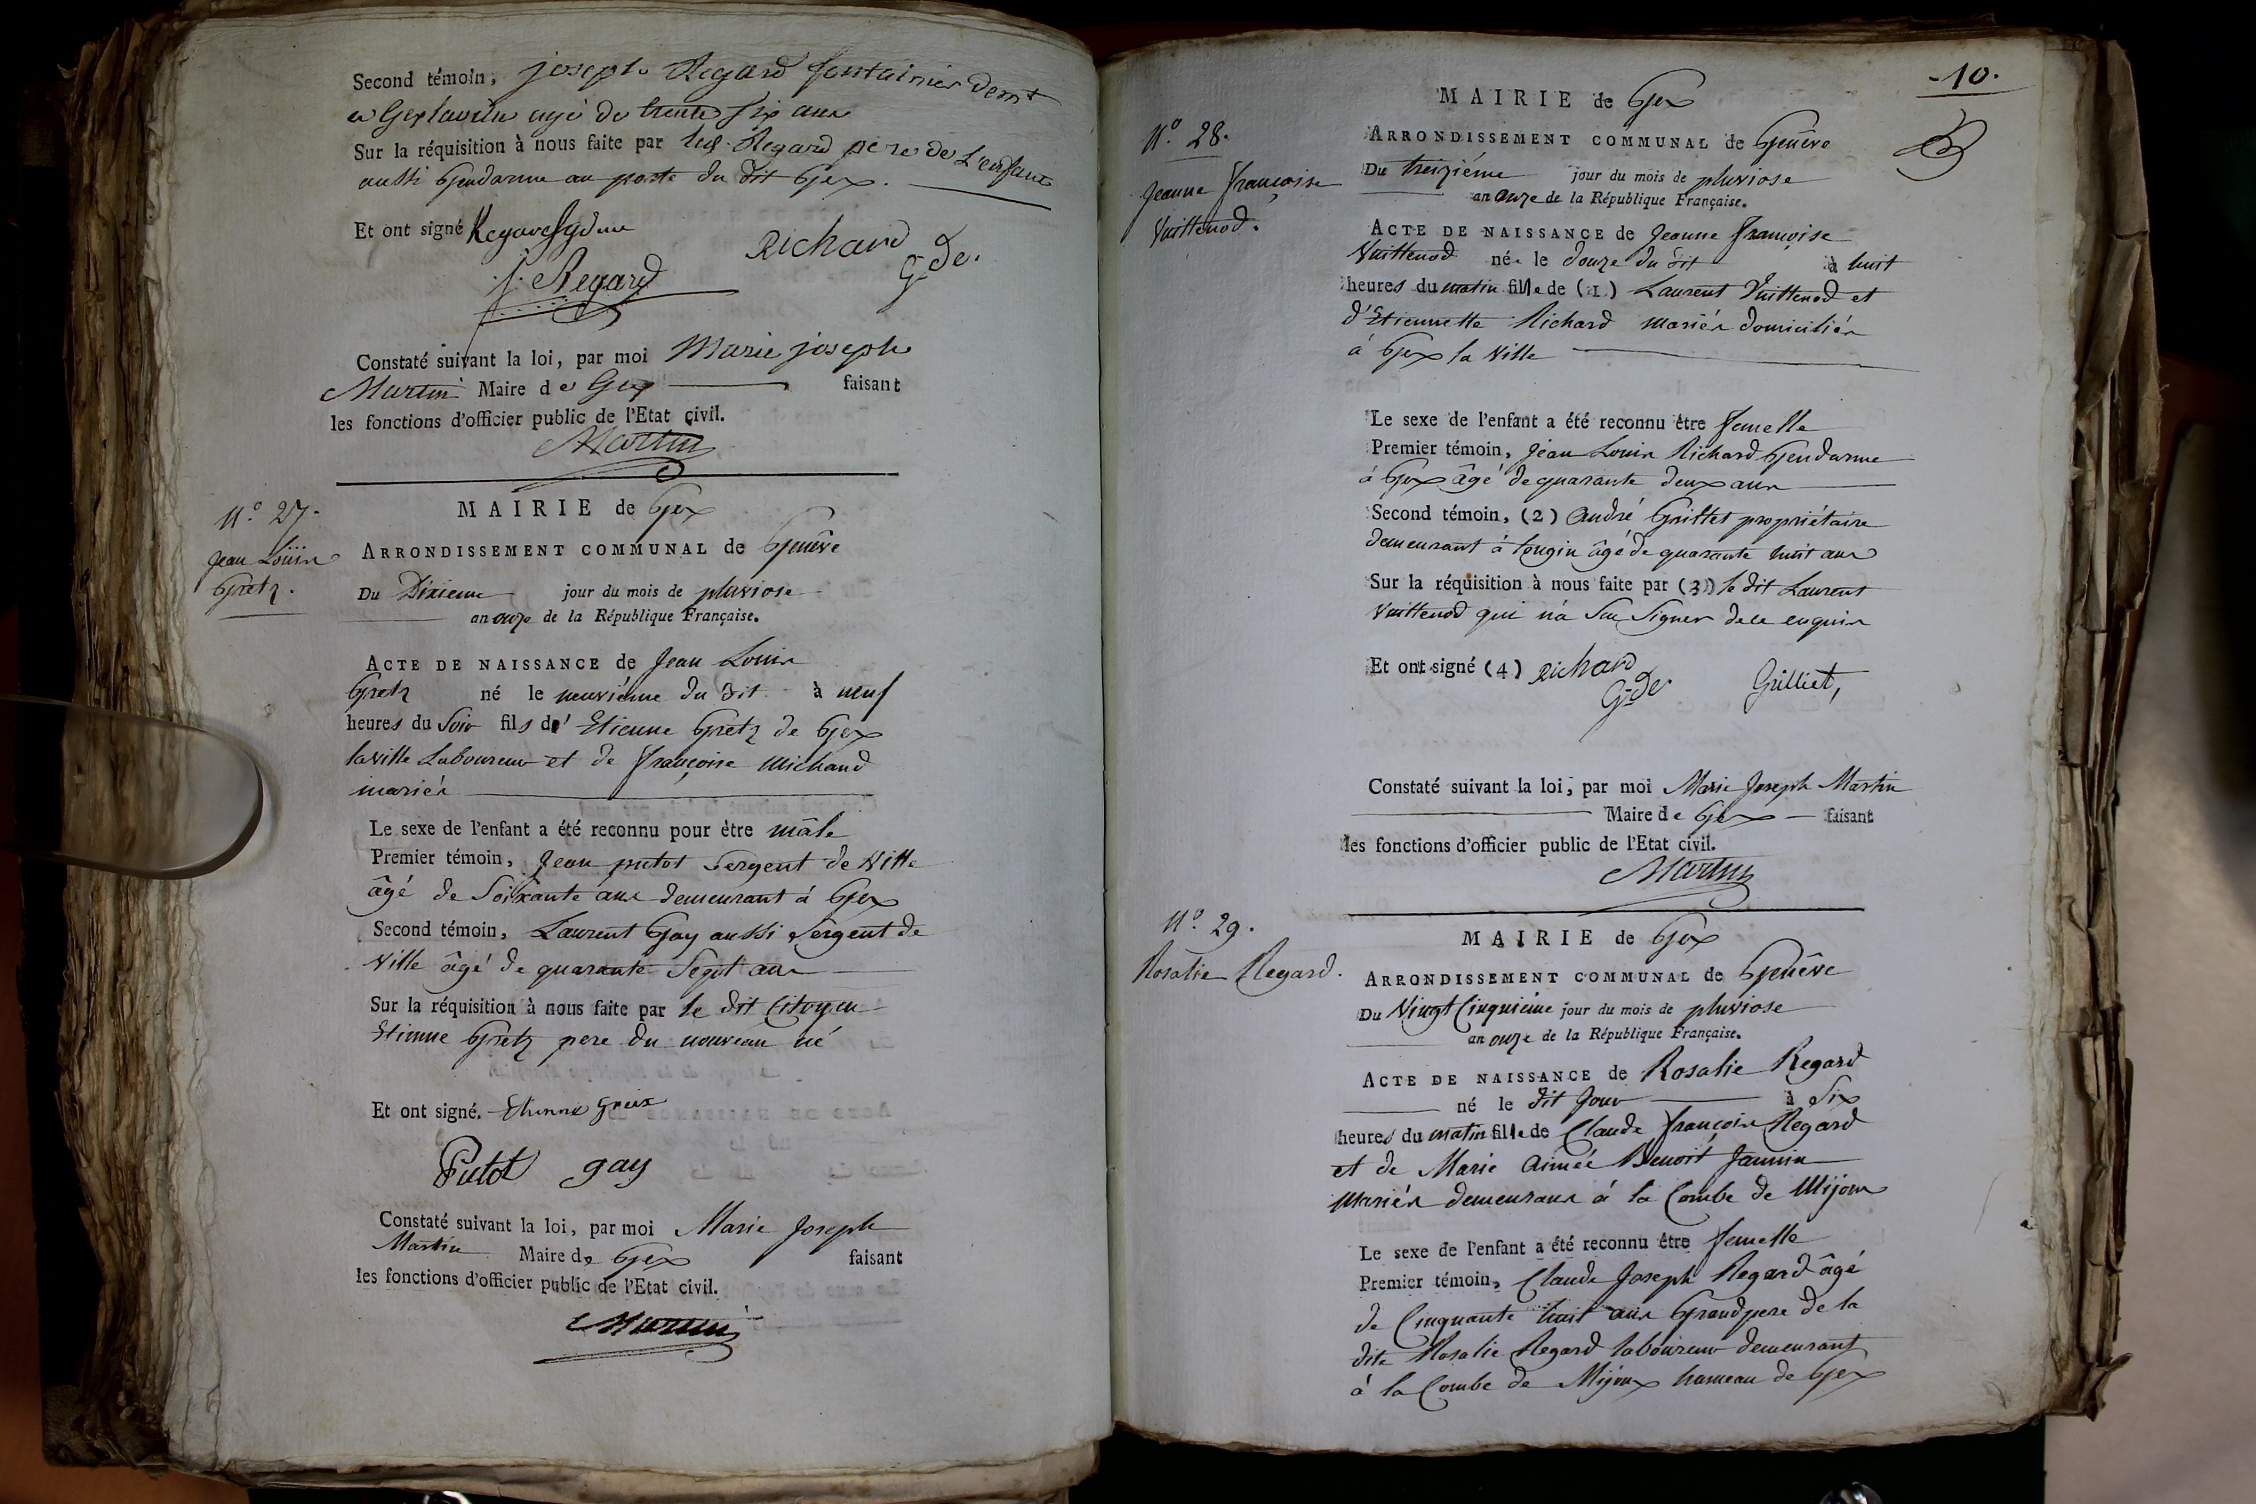 Second témoin, joseph Regard fontainier demt
a Gex laville agé de trente six ans
Sur la réquisition à nous faite par led. Regard pere de L'enfant
aussi Gendarme au poste du dit Gex.
Et ont signé Regard Richard
J. Regard Gde.
Constaté suivant la loi, par moi Marie joseph
Martin Maire de Gex faisant
les fonctions d'officier public de l'Etat civil.
Martin
N.° 27.
Jean Loüis
Gretz.
MAIRIE de Gex
ARRONDISSEMENT COMMUNAL de Genêve
Du Dixieme jour du mois de pluviose
an onze de la République Française.
ACTE DE NAISSANCE de Jean Louis
Gretz né le neuviéme du dit à neuf
heures du Soir fils d' Etienne Gretz de Gex
laville Laboureur et de françoise Michaud
mariés
Le sexe de l'enfant a été reconnu pour être mâle
Premier témoin, Jean putot Sergent de Ville
âgé de Soixante ans demeurant à Gex
Second témoin, Laurent Gay aussi Sergent de
Ville âgé de quarante Sept ans
Sur la réquisition à nous faite par le dit Citoyen
Etienne Gretz pere du nouveau né
Et ont signé. Etienne
Putot gay
Constaté suivant la loi, par moi Marie Joseph
Martin Maire de Gex faisant
les fonctions d'officier public de l'Etat civil.
Martin
10.
N.° 28.
Jeanne françoise
Vuittenod.
MAIRIE de Gex
ARRONDISSEMENT COMMUNAL de Genêve
Du treiziéme jour du mois de pluviose
an onze de la République Française.
ACTE DE NAISSANCE de Jeanne françoise
Vuittenod née le douze du dit à huit
heures du matin fille de (1) Laurent Vuittenod et
d'Etiennette Richard mariés domiciliés
à Gex la ville
Le sexe de l'enfant a été reconnu être femelle
Premier témoin, Jean Louis Richard Gendarme
à Gex âgé de quarante deux ans
Second témoin, (2) André Grillet propriétaire
demeurant à tougin âgé de quarante huit ans
Sur la réquisition à nous faite par (3) le dit Laurent
Vuittenod qui n'a Su Signer de ce enquis
Et ont signé (4) Richard Grilliet,
Gde
Constaté suivant la loi, par moi Marie Joseph Martin
Maire de Gex faisant
les fonctions d'officier public de l'Etat civil.
Martin
N.° 29.
Rosalie Regard.
MAIRIE de Gex
ARRONDISSEMENT COMMUNAL de Genêve
Du Vingt Cinquiéme jour du mois de pluviose
an onze de la République Française.
ACTE DE NAISSANCE de Rosalie Regard
né le dit Jour à Six
heures du matin fille de Claude françois Regard
et de Marie Aimée Benoit Jannin
Mariés demeurans à la Combe de Mijoux
Le sexe de l'enfant a été reconnu être femelle
Premier témoin, Claude Joseph Regard âgé
de Cinquante huit ans Grand pere de la
dite Rosalie Regard laboureur demeurant
à la Combe de Mijoux hameau de Gex